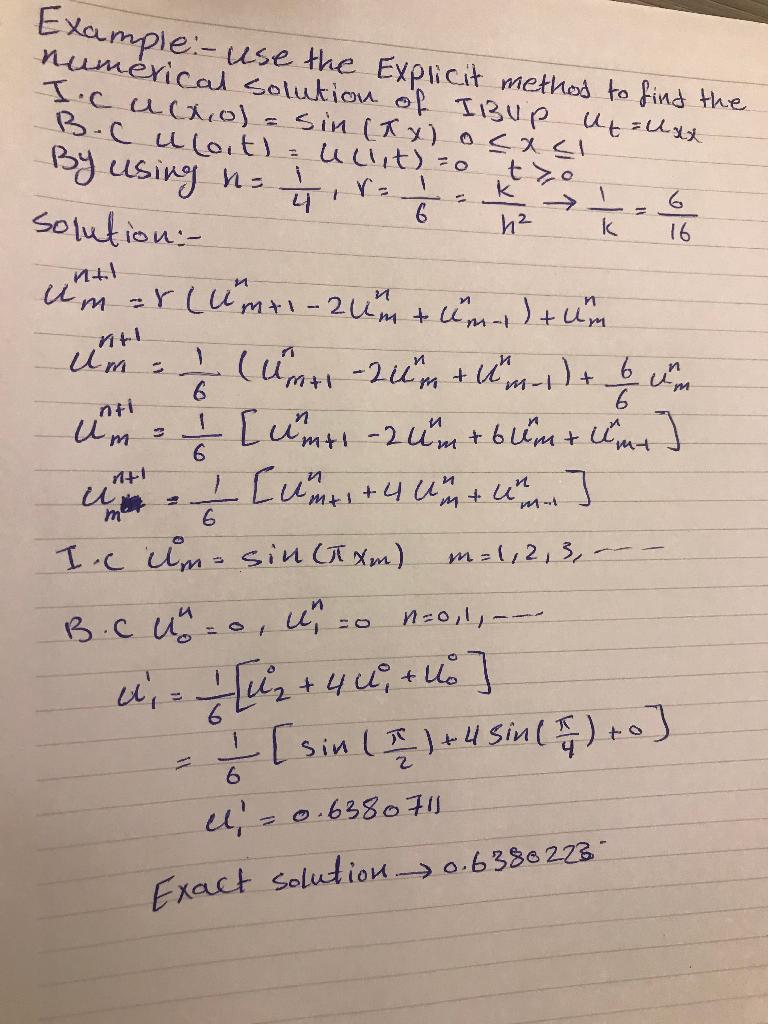 Example:- use the Explicit method to find the
numerical solution of IBVP u_t = u_xx
I.C u(x,0) = sin(πx) 0 ≤ x ≤ 1
B.C u(0,t) = u(1,t) = 0 t ≥ 0
By using h = 1/4, r = 1/6 = k/h² → 1/k = 6/16
Solution:-
u_m^{n+1} = r(u_{m+1}^n - 2u_m^n + u_{m-1}^n) + u_m^n
u_m^{n+1} = 1/6 (u_{m+1}^n - 2u_m^n + u_{m-1}^n) + 6/6 u_m^n
u_m^{n+1} = 1/6 [u_{m+1}^n - 2u_m^n + 6u_m^n + u_{m-1}^n]
u_m^{n+1} = 1/6 [u_{m+1}^n + 4u_m^n + u_{m-1}^n]
I.C u_m^0 = sin(πx_m) m = 1, 2, 3, ----
B.C u_0^n = 0, u_1^n = 0 n = 0, 1, ----
u_1^1 = 1/6 [u_2^0 + 4u_1^0 + u_0^0]
= 1/6 [sin(π/2) + 4 sin(π/4) + 0]
u_1^1 = 0.6380711
Exact solution → 0.6380223